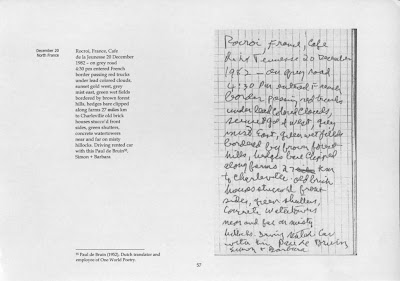 December 20
North France
Rocroi, France, Cafe
de la Jeunesse 20 December
1982 – on grey road
4:30 pm entered French
border passing red trucks
under lead colored clouds,
sunset gold west, grey
mist east, green wet fields
bordered by brown forest
hills, hedges bare clipped
along farms 27 miles km
to Charleville old brick
houses stucco'd front
sides, green shutters,
concrete watertowers
near and far on misty
hillocks. Driving rented car
with this Paul de Bruin
Simon + Barbara
Paul de Bruin (1952). Dutch translator and
employee of One World Poetry.
57
Rocroi, France, Cafe
20 December
1982 – on grey road
4:30 PM entered French
border passing red trucks
under lead colored clouds,
sunset gold west, grey
mist east, green wet fields
bordered by brown forest
hills, hedges bare clipped
along farms 27 km
to Charleville old brick
houses stucco'd front
sides, green shutters,
concrete watertowers
near and far on misty
hillocks. Driving car
with this Paul de Bruin
Simon + Barbara